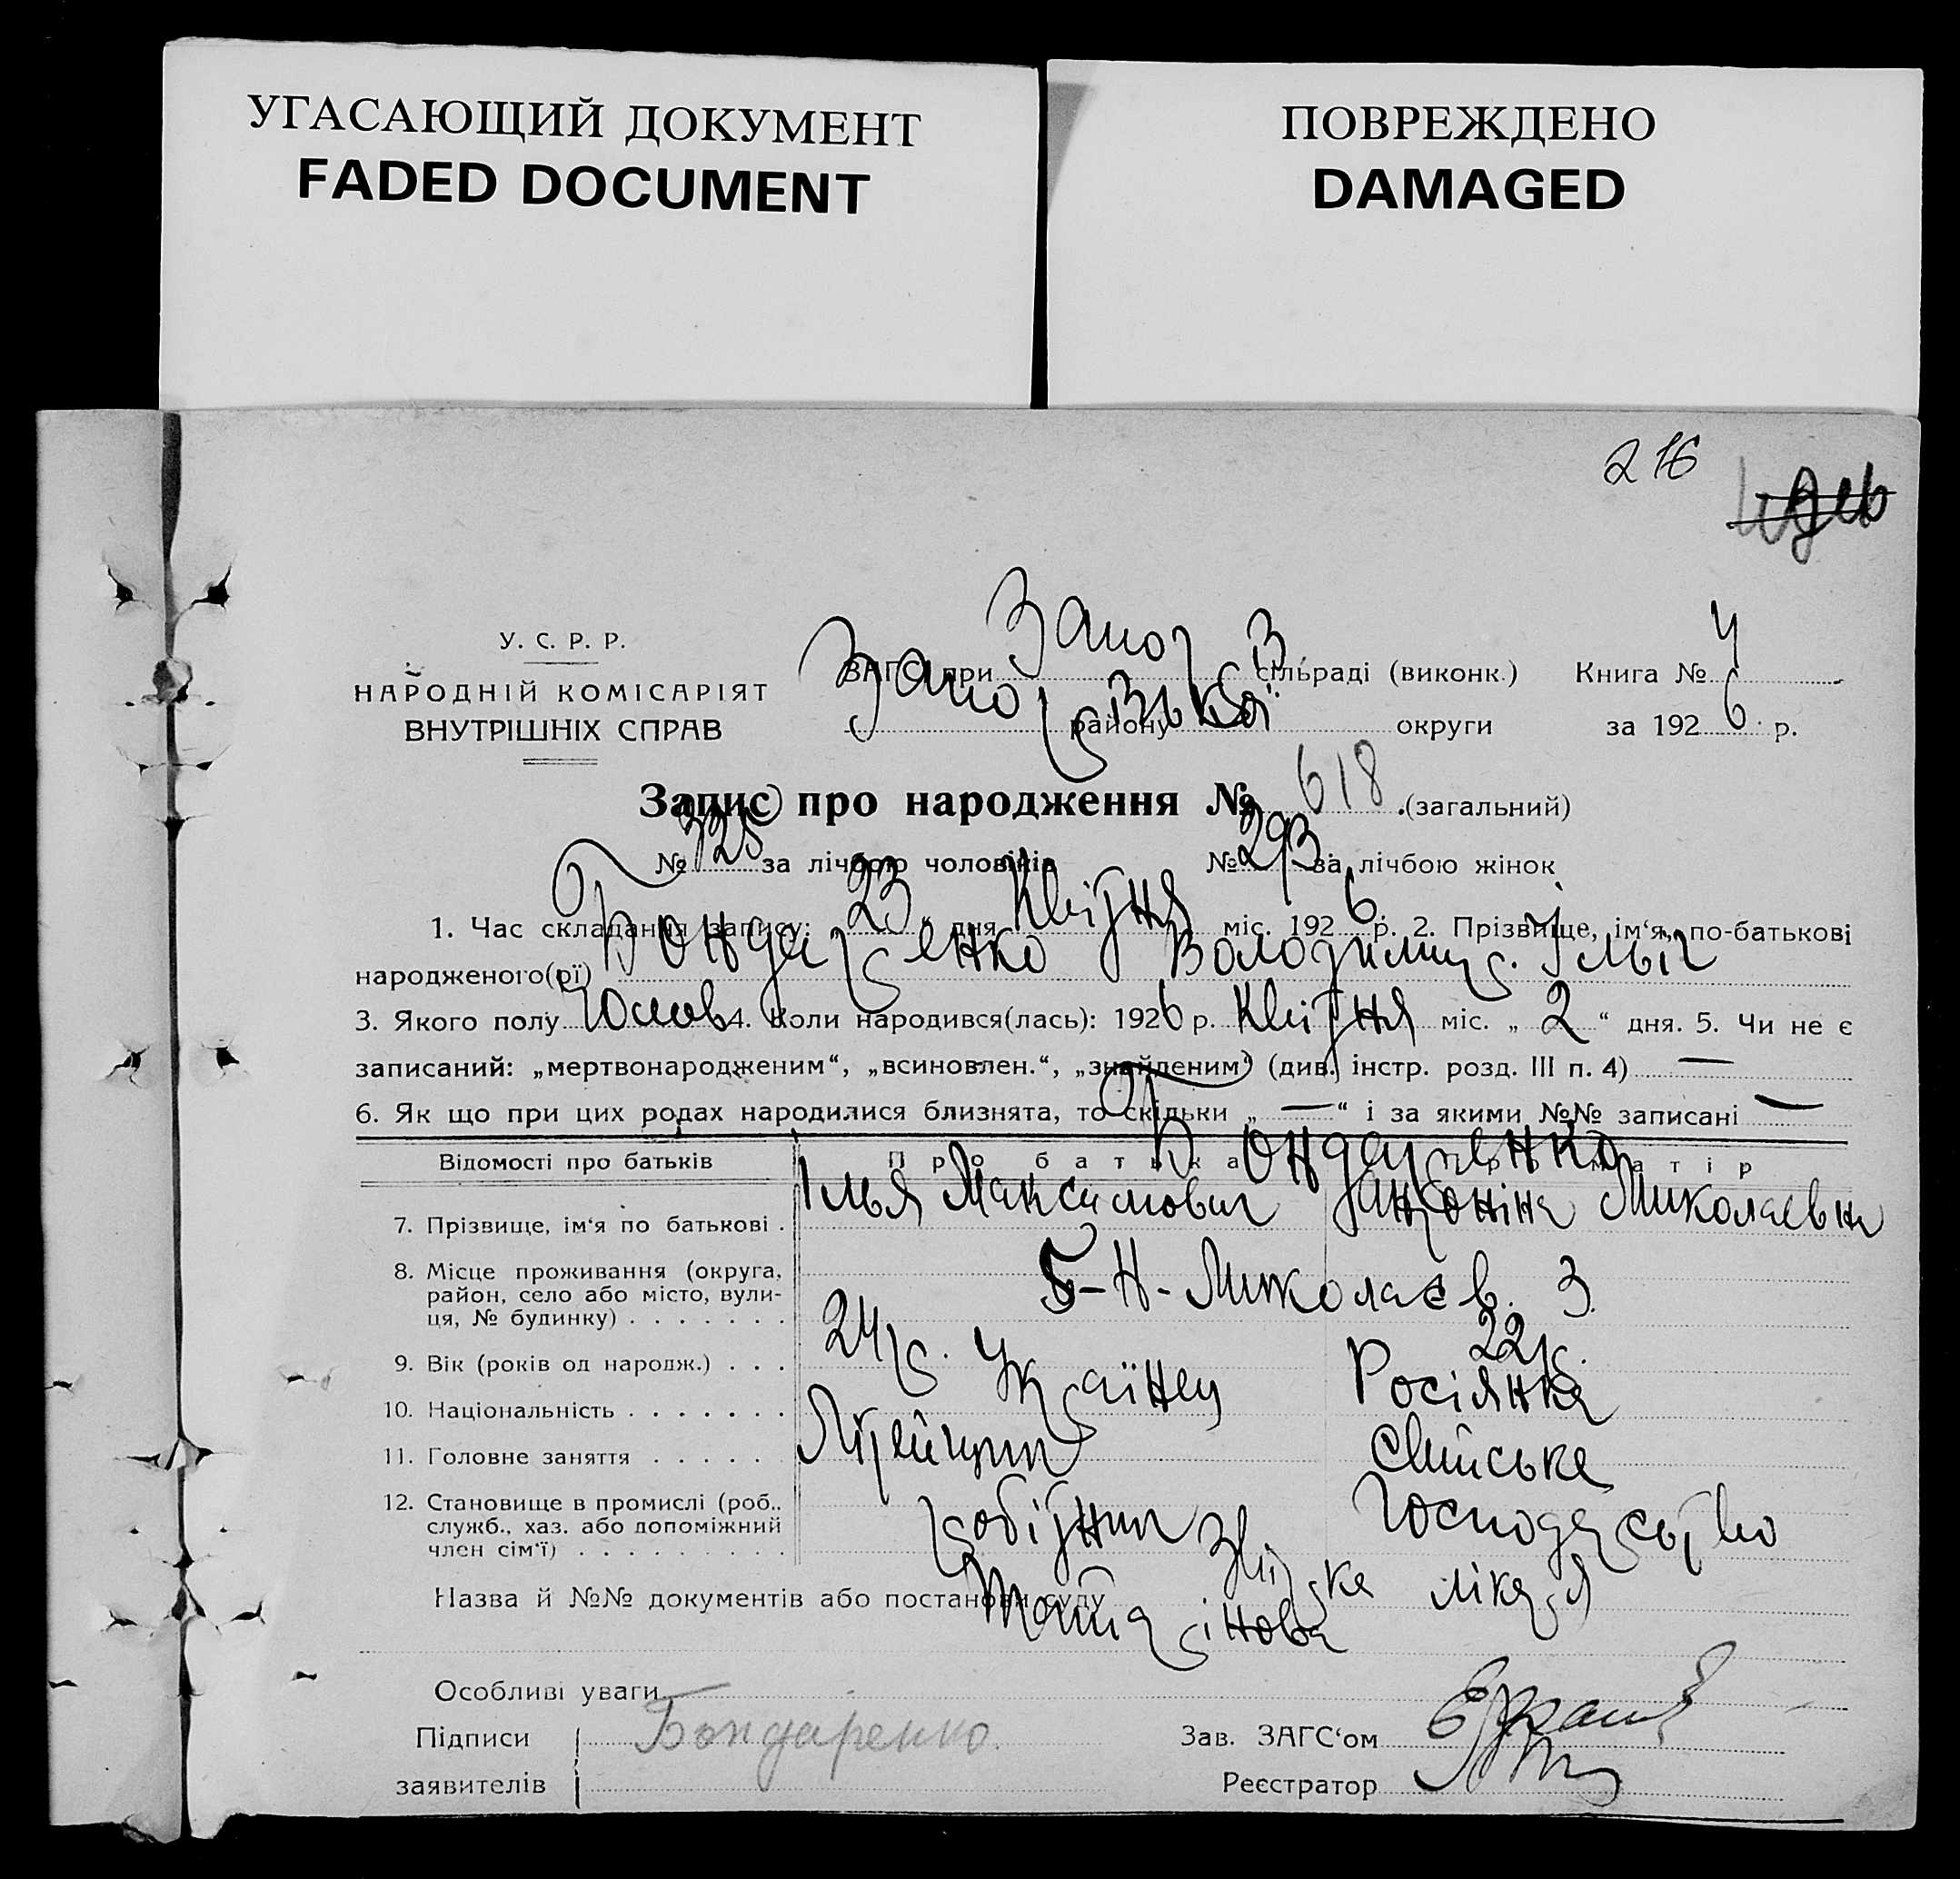 УГАСАЮЩИЙ ДОКУМЕНТ
FADED DOCUMENT
ПОВРЕЖДЕНО
DAMAGED
216
У. С. Р. Р.
НАРОДНІЙ КОМІСАРІЯТ
ВНУТРІШНІХ СПРАВ
ЗАГС при Запор сільраді (виконк.) Книга № 4
Запорізької району округи за 1926 р.
Запис про народження № 618 (загальний)
№ 325 за лічбою чоловіків № 293 за лічбою жінок
1. Час складання запису: 23 дня Квітня міс. 1926 р. 2. Прізвище, ім‘я, по-батькові
народженого(рї) Бондаренко Володимир. Ільїч
3. Якого полу Чолов 4. Коли народився(лась): 1926 р. Квітня міс. „ 2 “ дня. 5. Чи не є
записаний: „мертвонародженим“, „всиновлен.“, „знайденим“ (див. інстр. розд. III п. 4) —
6. Як що при цих родах народилися близнята, то скільки „ — “ і за якими №№ записані —
Відомості про батьків Про батька Про матір
Бондаренко
7. Прізвище, ім‘я по батькові . Ілья Максимович Антоніна Миколаевна
8. Місце проживання (округа, район, село або місто, вулиця, № будинку) . . . . . . . Б-Н-Миколаєв. 3.
9. Вік (років од народж.) . . . 24 р. 22 р.
10. Національність . . . . . . . Українец Росіянка
11. Головне заняття . . . . . . Хатнє
12. Становище в промислі (роб.. служб., хаз. або допоміжний член сім‘ї) . . . . . . . . . робітник Господарство
Назва й №№ документів або постанови суду Звідка лікаря
Особливі уваги
Підписи Бондаренко. Зав. ЗАГС‘ом
заявителів Реєстратор